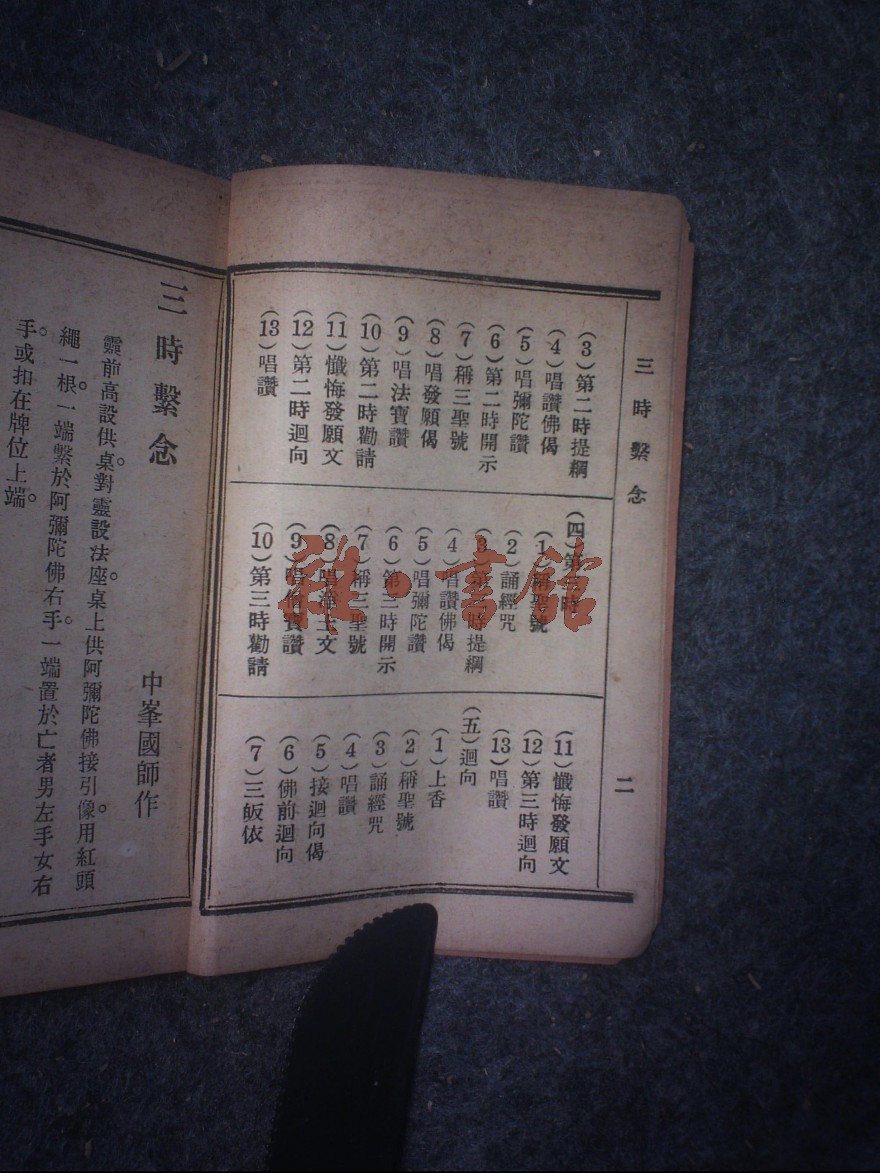 三時繫念
二
(3)第二時提綱
(4)唱讚佛偈
(5)唱彌陀讚
(6)第二時開示
(7)稱三聖號
(8)唱發願偈
(9)唱法寶讚
(10)第二時勸請
(11)懺悔發願文
(12)第二時迴向
(13)唱讚
(四)第三時
(1)稱聖號
(2)誦經咒
(3)第三時提綱
(4)唱讚佛偈
(5)唱彌陀讚
(6)第三時開示
(7)稱三聖號
(8)唱 文
(9)唱僧寶讚
(10)第三時勸請
(11)懺悔發願文
(12)第三時迴向
(13)唱讚
(五)迴向
(1)上香
(2)稱聖號
(3)誦經咒
(4)唱讚
(5)接迴向偈
(6)佛前迴向
(7)三皈依
三時繫念
中峯國師作
靈前高設供桌。對靈設法座。桌上供阿彌陀佛接引像。用紅頭
繩一根。一端繫於阿彌陀佛右手。一端置於亡者男左手女右
手。或扣在牌位上端。
雅·書館